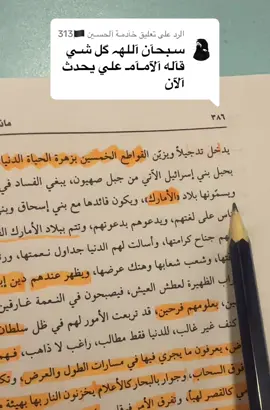 الرد على تعليق خادمة الحسين 🏴313
سبحان اللهہ كل شي
قاله الامام علي يحدث
الان
٣٨٦
يدخل تدجيلاً ويزيّن القواطع الخمسين بزهرة الحياة الدنيا
بحيل بني إسرائيل الآتي من جبل صهيون، يبغي الفساد في
ويسمّونها بلاد «الأمارك»، ويكون قائدها مع بني إسحاق وبني
على لغتهم، ويدعوهم بدعوتهم، وتتم ببلاد الأمارك
هم جناح كرامتها، وأسالت لهم الدنيا جداول نعمتها،
وشعب شعابها وهتك عرضها، ويظهر عندهم
الظهيرة لعطش العيش، فيصبحون في النعمة غارقين
بعلومهم فرحين، قد تربعت الأمور لهم في ظل سلطان
كنف غير غالب، للدنيا فقط مطالب، راغب لا ذاهب، فهم
يعرفون ما يجري فيها في مسارات الطول والعرض،
فوق السحاب، وجوار بالبحار كالأعلام يخزنون النار بها بهيئة
كالقصر لهبها